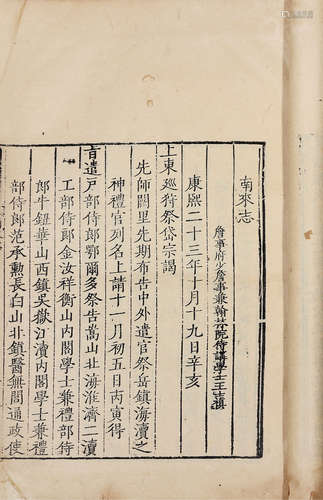 南來志
詹事府少詹事兼翰林院侍講學士王士禛
康熙二十三年十月十九日辛亥
上東廵狩祭岱宗謁
先師闕里先期布告中外遣官祭岳鎮海瀆之
神禮官列名上請十一月初五日丙寅得
旨遣戶部侍郎鄂爾多祭告嵩山北海淮濟二瀆
工部侍郎金汝祥衡山內閣學士兼禮部侍
郎牛鈕華山西鎮吳嶽江瀆內閣學士兼禮
部侍郎范承勲長白山北鎮醫無閭通政使